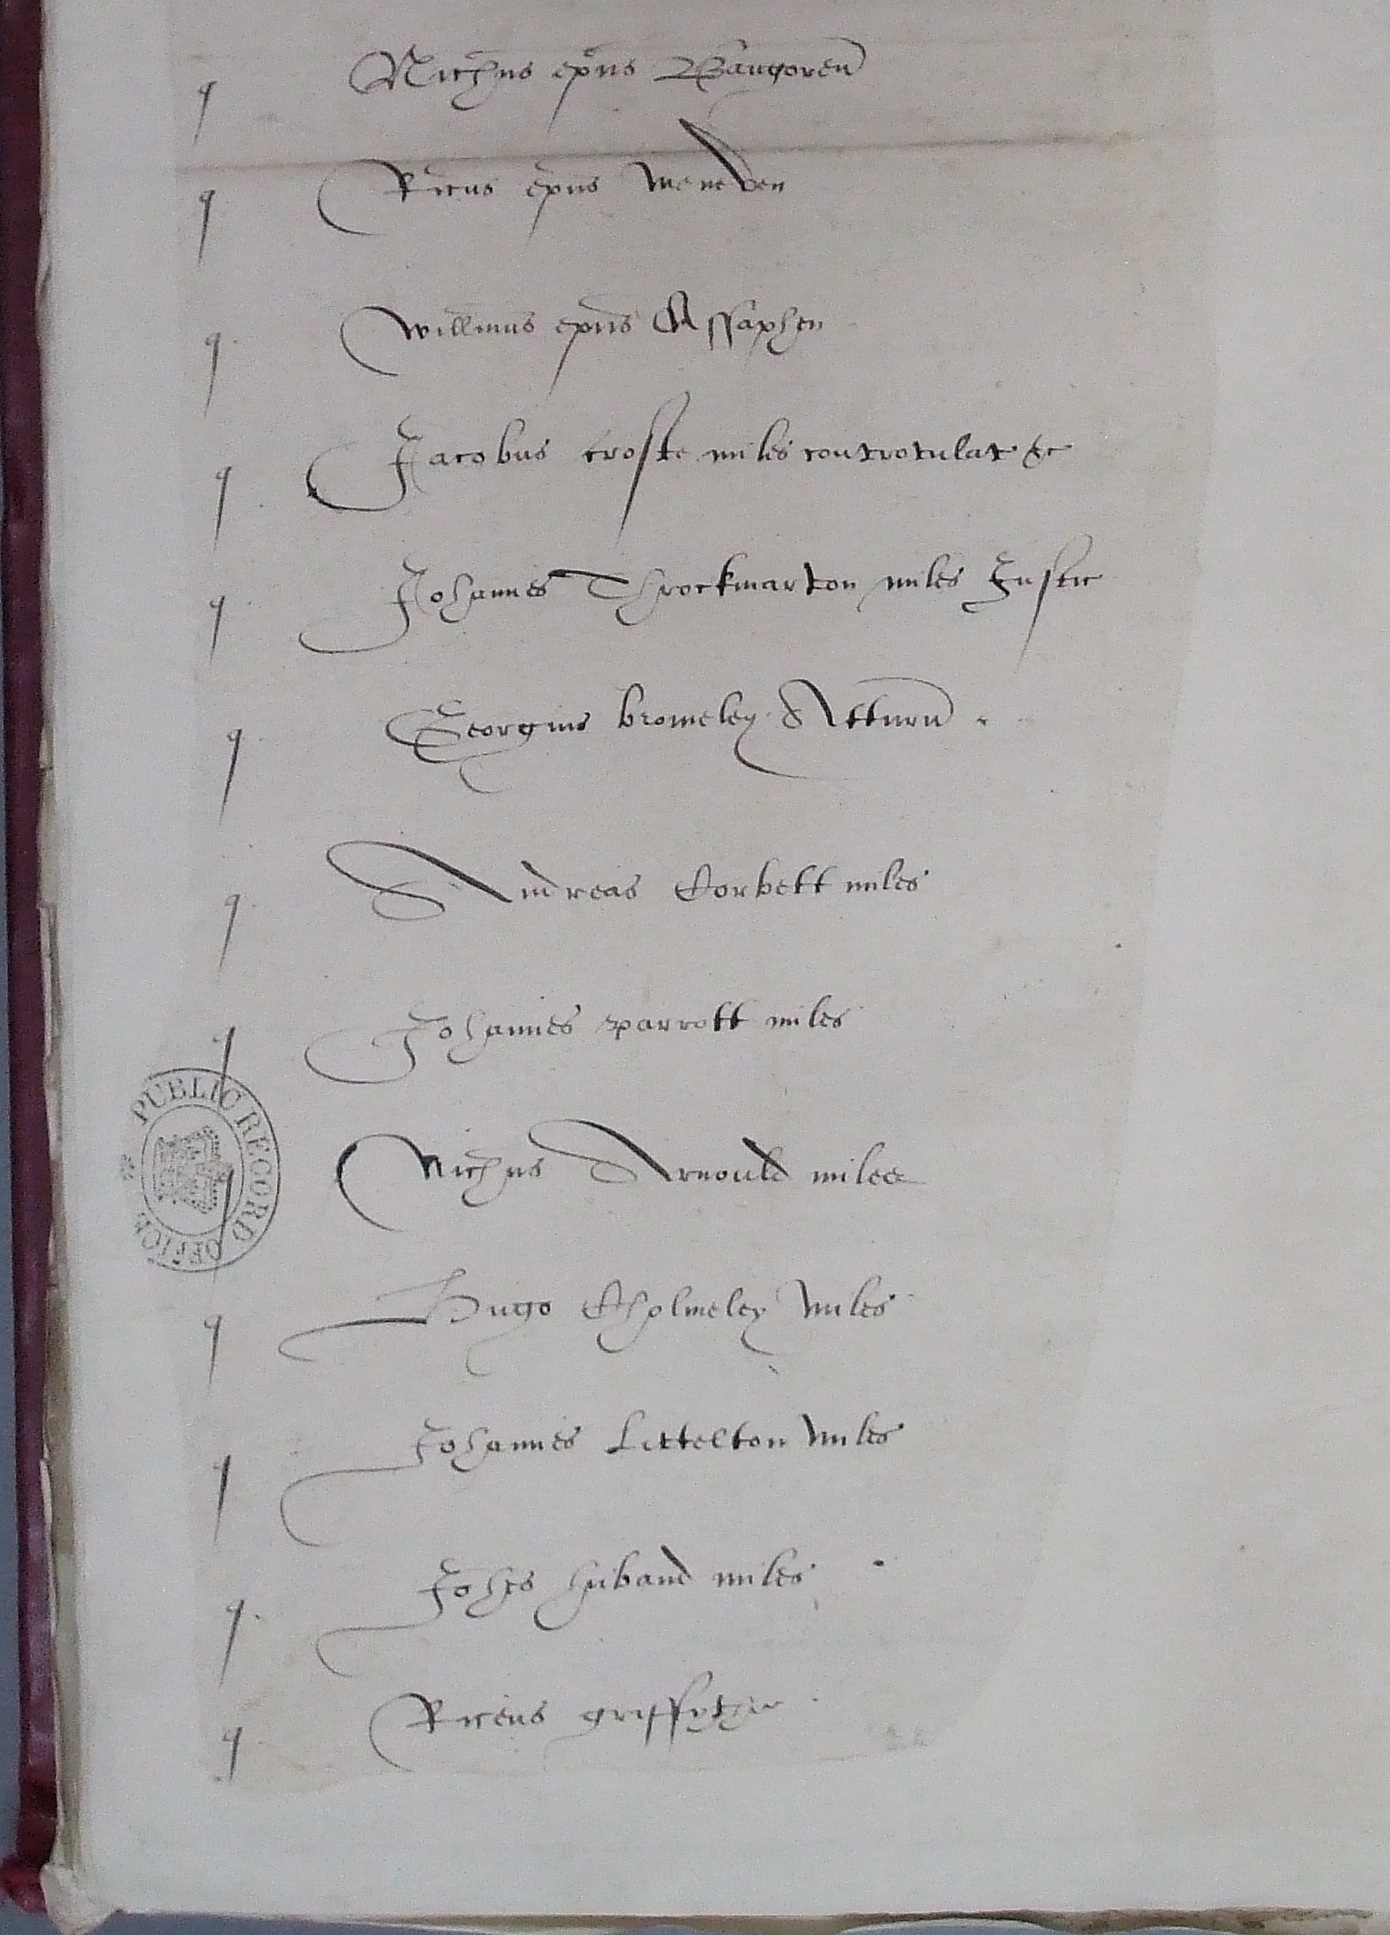 q Nichus epus Bangoren
q Ricus epus meneven
q Willmus epus Assaphen
q Jacobus crofte miles controtulat &c
q Johannes Throckmarton miles Justic
q Georgius bromeley Atturn
q Andreas Corbett miles
q Johannes parrott miles
PUBLIC RECORD OFFICE
q Nichus Arnould miles
q Hugo Cholmeley miles
q Johannes Littelton miles
q Johes huband miles
q Ricus griffythe